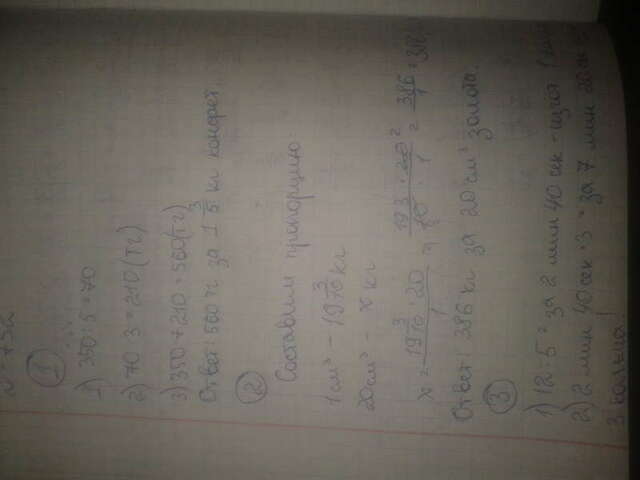 ①
1) 350:5=70
2) 70·3=210(тг)
3) 350+210=560(тг)
Ответ: 560 тг за 1 3/5 кг конфет.
②
Составим пропорцию:
1 см³ - 19 3/10 кг
20 см³ - x кг
x = (19 3/10 · 20)/1 = (193 · 20²)/(10 · 1) = 386/1 = 386
Ответ: 386 кг за 20 см³ золота.
③
1) 12:5= за 2 мин 40 сек - идёт 1
2) 2 мин 40 сек ·3 = за 7 мин 20 сек
3 кольца!